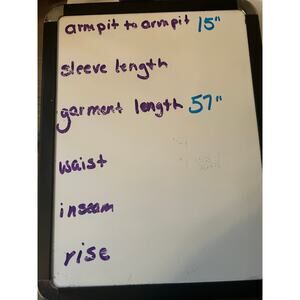 armpit to armpit 15"
sleeve length
garment length 57"
waist
inseam
rise